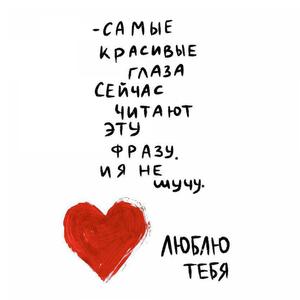 -САМЫЕ
КРАСИВЫЕ
ГЛАЗА
СЕЙЧАС
ЧИТАЮТ
ЭТУ
ФРАЗУ.
И Я НЕ
ШУЧУ.
ЛЮБЛЮ
ТЕБЯ